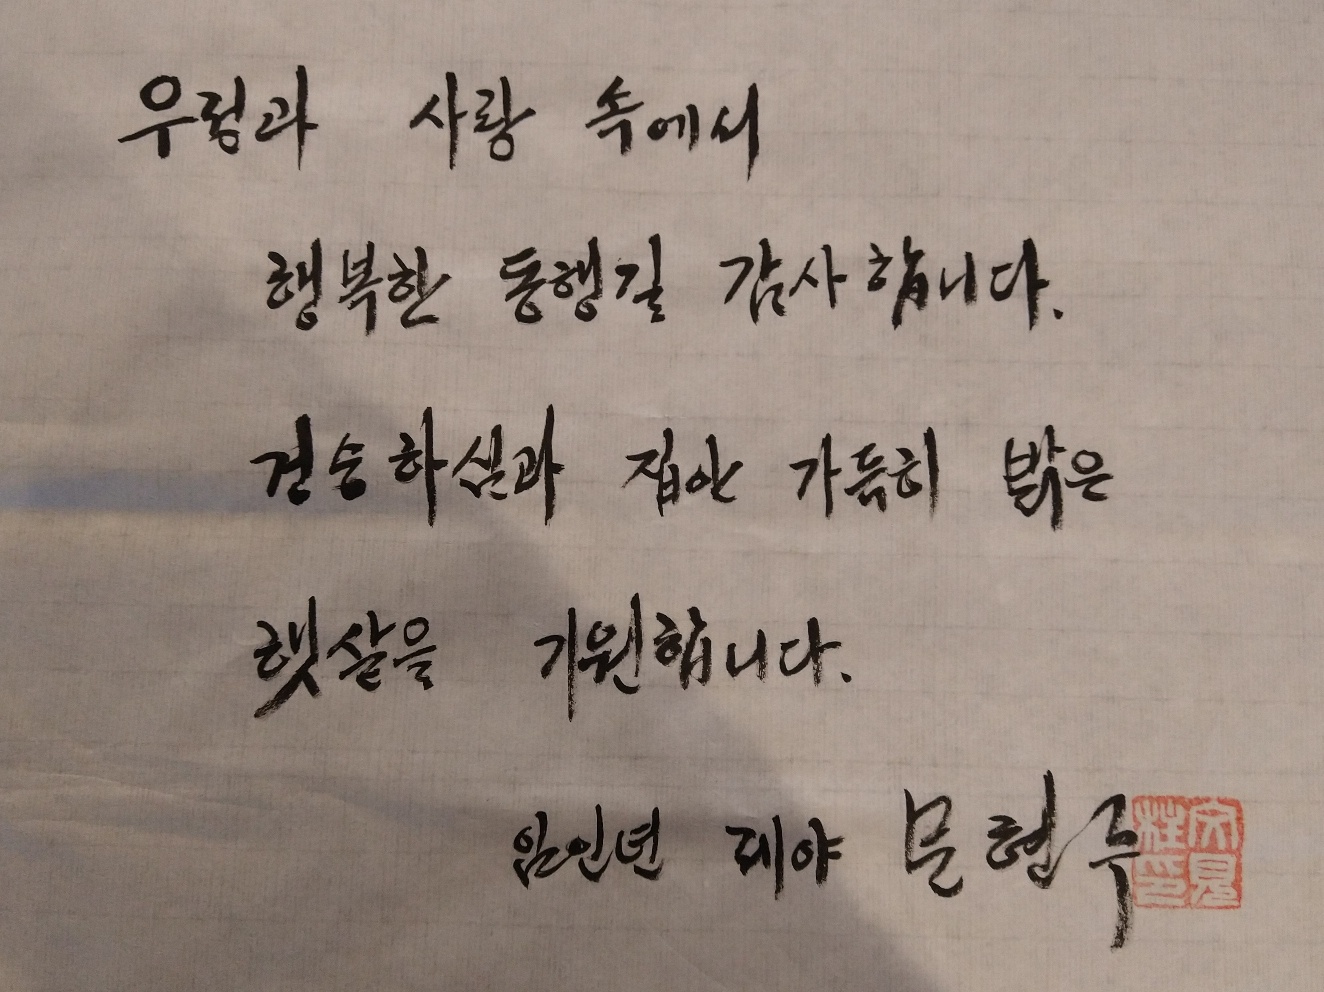 사랑 속에서
행복한 동행길 감사합니다.
건승하심과 집안 가득히 밝은
햇살을 기원합니다.
임인년 제야 문현주